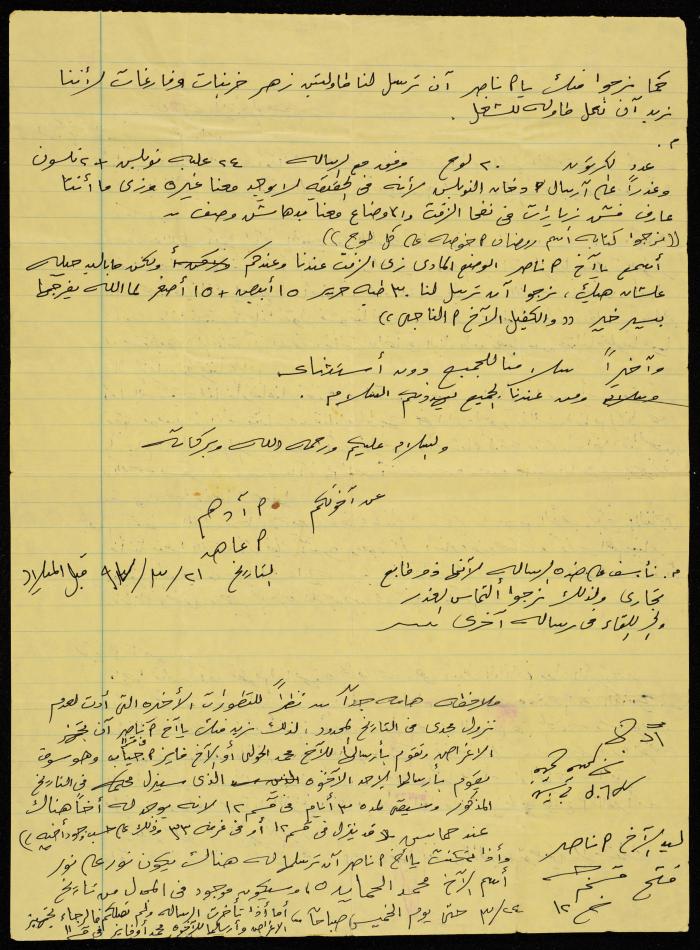 كما نرجوا منك يا ناصر أن ترسل لنا طاولتين زهر خربات وفارغات لأننا
نريد أن نعمل طاوله للشغل.
م.
عدد لكرتون ٢٠ لوح ومفقود مع رساله ٢٤ علبه نوبلس + ٢ تلسون
وعذراً على أرسال دخان النوبلس لأنه في الحقيقه لا يوجد معنا غيره وزي ما أنت
عارف فش زيارات في نفحا الزفت والأوضاع معنا بدهاش وصف
((نرجوا كتابه أسم رمضان خوصه على كل لوح))
أسمع يا أخ ناصر الوضع المادي زي الزفت عندنا وعندكم ولكن ما باليد حيله
علشان هيك، نرجوا أن ترسل لنا ٣٠ طبه حرير ١٥ أبيض + ١٥ أصفر لما الله يفرجها
بيسير خير ((والكفيل الأخ الناجي))
وأخيراً سلامنا للجميع دون أستثناء
ومن عندنا الجميع يهدونكم السلام.
والسلام عليكم ورحمه الله وبركاته
عن أخوتكم أدهم
عاهد
التاريخ ٢١/٣/ قبل الميلاد
م. نأسف على هذه الرساله لأنها ذو طابع
تجاري ولذلك نرجوا ألتماس العذر
وإلى اللقاء في رساله أخرى
ملاحظه هامه جداً نظراً للتطورات الأخيره التي أدت لعدم
نزول مجدي في التاريخ المحدد، لذلك نريد منك يا أخ ناصر أن تجهز
الاغراض وتقوم بأرسالها للأخ محمد الحولي أو الأخ فايز وهو سوف
يقوم بأرسالها لأحد الأخوه الذي سينزل في التاريخ
المذكور وسيبقى لمده ٣ أيام في قسم ١٢ لأنه يوجد له أخاً هناك
عند حماس قد ينزل في قسم ١٢ أو في غرفه ٣٣ وذلك على حسب وجود أخيه)
وأذا تمكنت يا أخ ناصر أن ترسلها له هناك يكون نور على نور
أسم الأخ محمد الحمايده، وسيكون موجود في المحل من تاريخ
٢٤/٣ حتى يوم الخميس صباحاً أما أذا تأخرت الرساله ولم تصلكم فالرجاء تجهيز
الاغراض وأرسالها للأخوه محمد أو فايز في قسم
ليد الأخ ناصر
فتح قسم
نخ ١٢